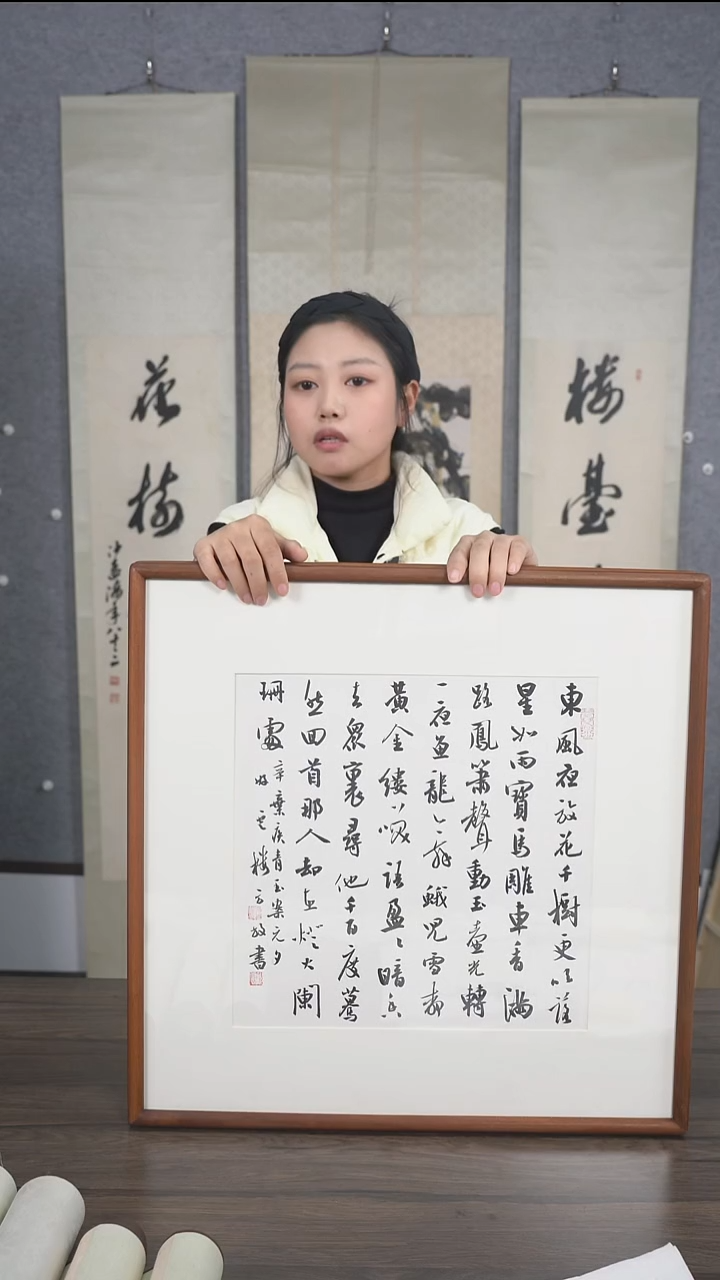 楼臺
花樹
沙孟海年八十二
東風夜放花千樹更吹落
星如雨寶馬雕車香滿
路鳳簫聲動玉壺光轉
一夜魚龍舞蛾兒雪柳
黃金縷笑語盈〻暗香
去眾裏尋他千百度驀
然回首那人却在燈火闌
珊處
辛棄疾青玉案元夕